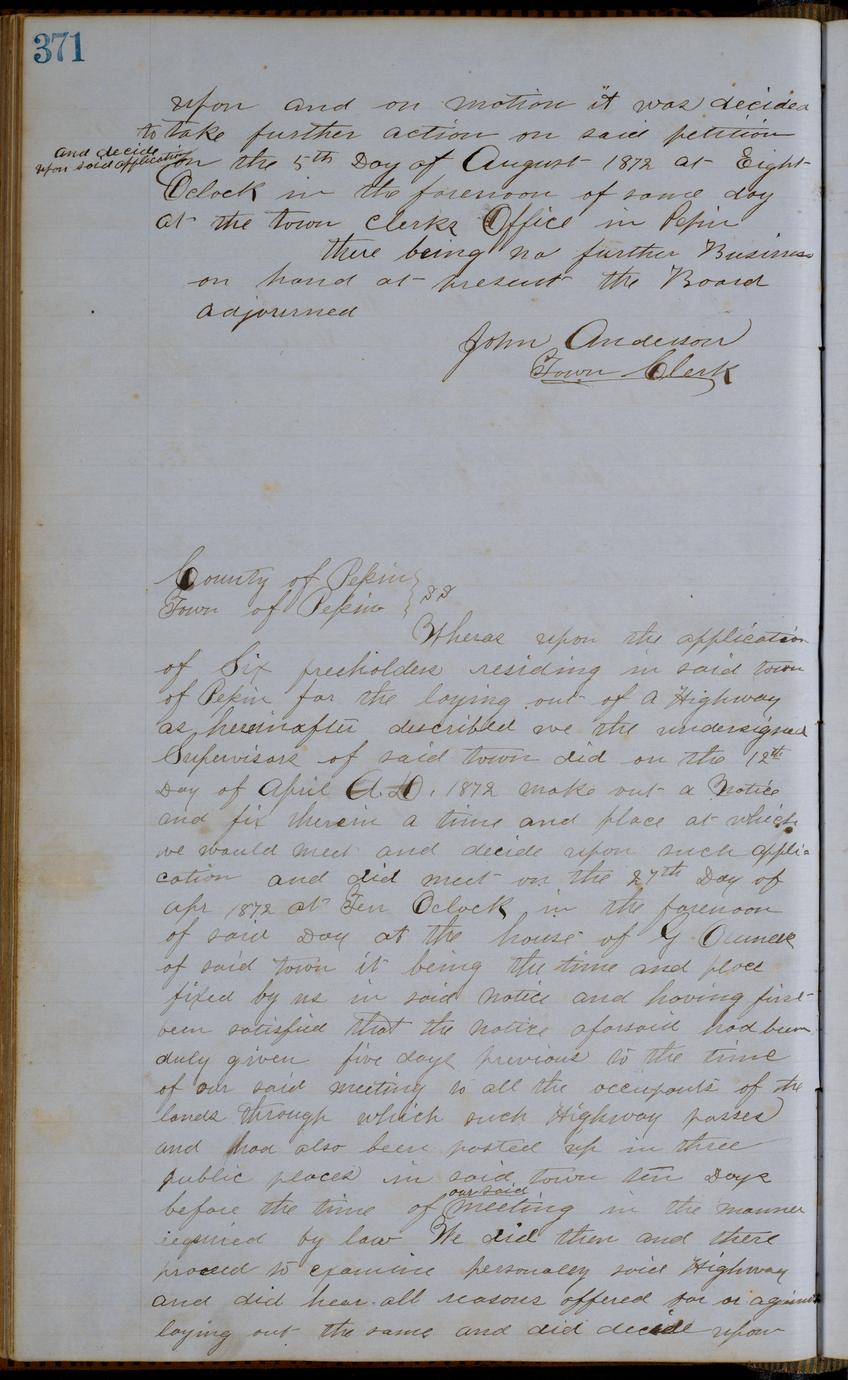 371
upon and on motion it was decided
to take further action on said petition
and decide
upon said application
on the 5th Day of August 1872 at Eight
Oclock in the forenoon of same day
at the town Clerks Office in Pepin
there being no further Business
on hand at present the Board
adjourned
John Anderson
Town Clerk
County of Pepin
Town of Pepin } SS
Wheras upon the application
of Six freeholders residing in said town
of Pepin for the laying out of a Highway
as hereinafter described we the undersigned
Supervisors of said town did on the 12th
Day of April A.D. 1872 make out a Notice
and fix therein a time and place at which
we would meet and decide upon such appli-
cation and did meet on the 27th Day of
Apr 1872 at Ten Oclock in the forenoon
of said Day at the house of G
of said town it being the time and place
fixed by us in said notice and having first
been satisfied that the notice aforsaid had been
duly given five days previous to the time
of our said meeting to all the occupants of the
lands through which such Highway passes
and had also been posted up in three
public places in said town ten Days
our said
before the time of meeting in the manner
required by law We did then and there
proceed to examine personaley said Highway
and did hear all reasons offered for or against
laying out the same and did decide upon